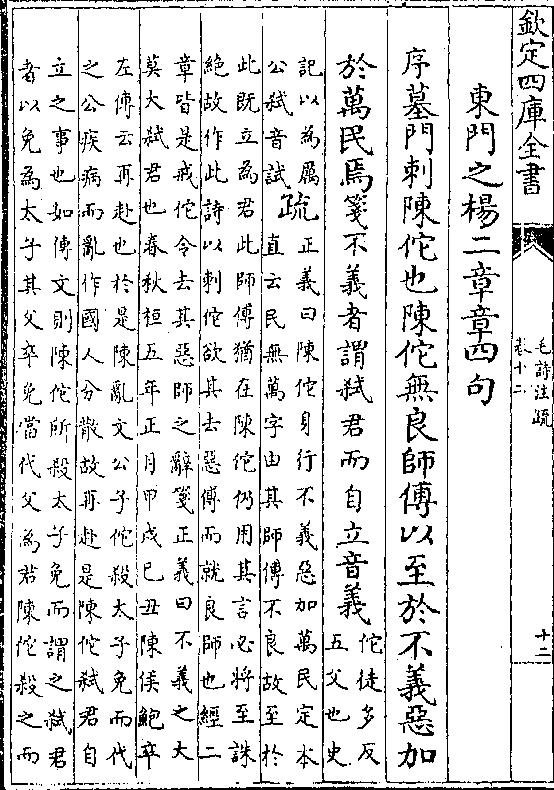 欽定四庫全書
毛詩注疏
卷十二
十二
東門之楊二章章四句
序墓門刺陳佗也陳佗無良師傅以至於不義惡加
於萬民焉箋不義者謂弑君而自立音義
佗徒多反
五父也史
記以為厲
公弑音試
疏
正義曰陳佗身行不義惡加萬民定本
直云民無萬字由其師傅不良故至於
此既立為君此師傅猶在陳佗仍用其言必將至誅
絶故作此詩以刺佗欲其去惡傅而就良師也經二
章皆是戒佗令去其惡師之辭箋正義曰不義之大
莫大弑君也春秋桓五年正月甲戌己丑陳侯鮑卒
左傳云再赴也於是陳亂文公子佗殺太子免而代
之公疾病而亂作國人分散故再赴是陳佗弑君自
立之事也如傳文則陳佗所殺太子免而謂之弑君
者以免為太子其父卒免當代父為君陳佗殺之而